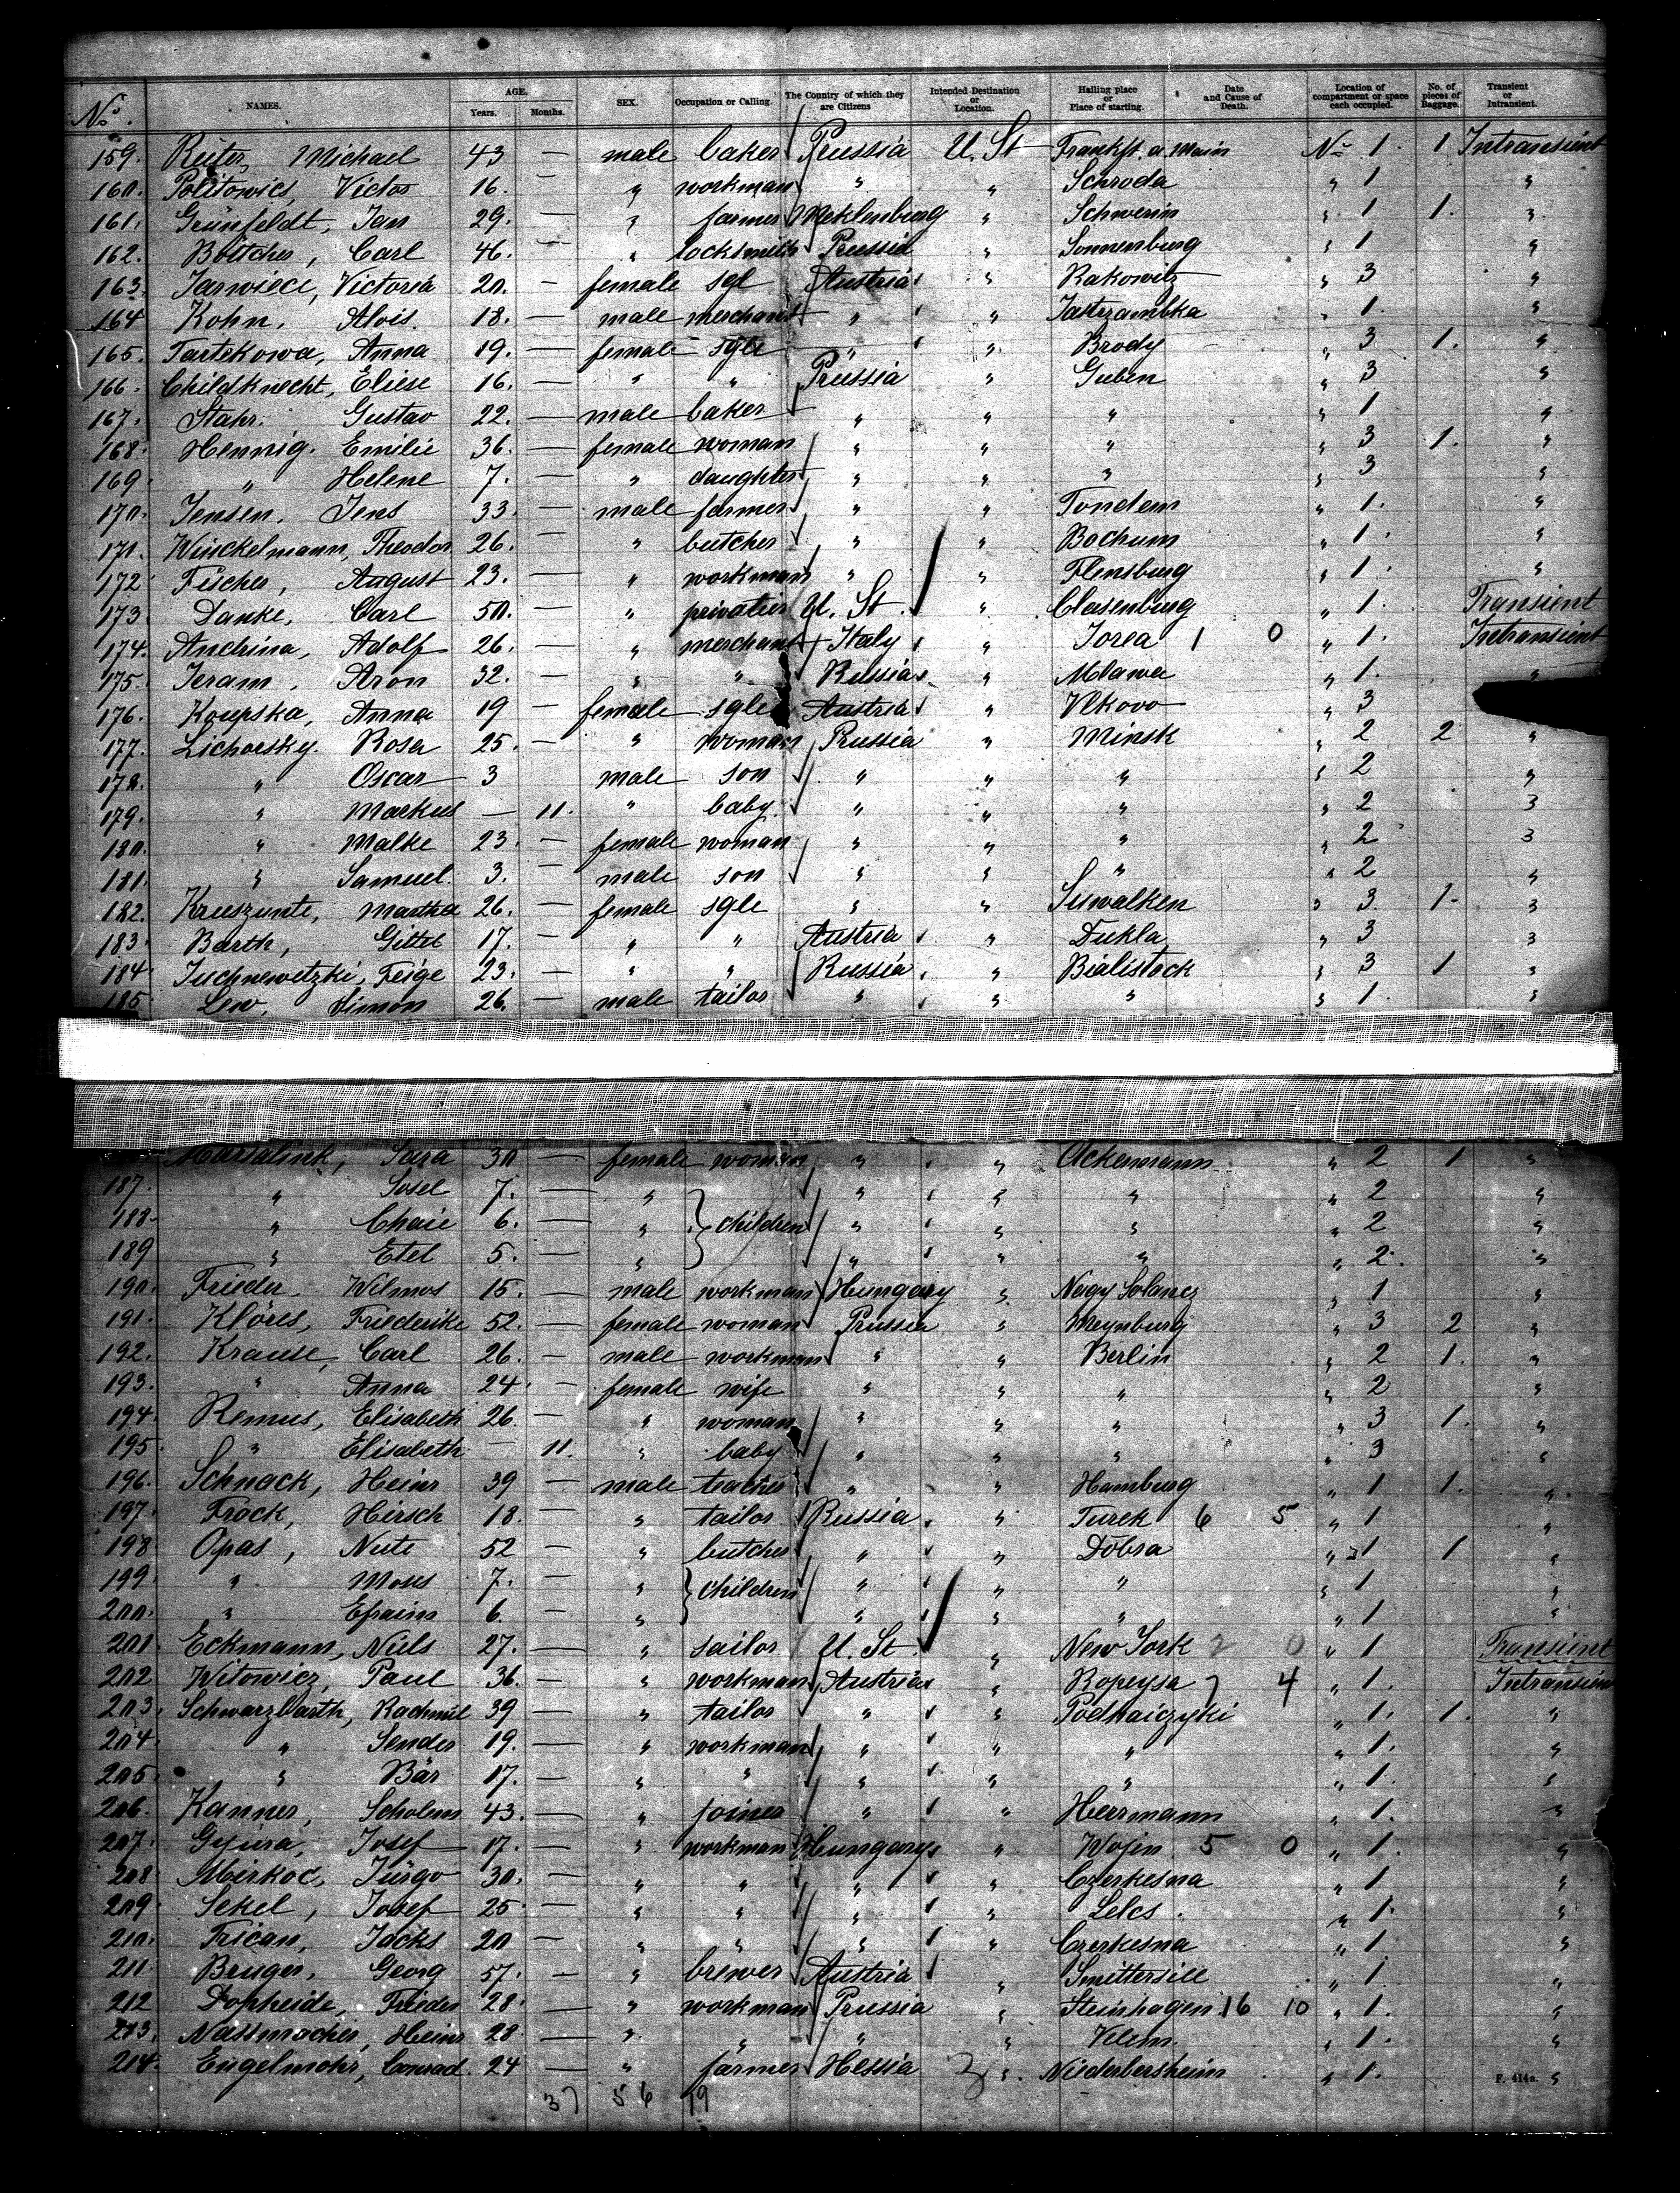 No. NAMES. AGE. Years. Months. SEX. Occupation or Calling. The Country of which they are Citizens Intended Destination or Location. Hailing place or Place of starting. Date and Cause of Death. Location of compartment or space each occupied. No. of pieces of Baggage. Transient or Intransient.
159. Reiter, Michael 43 — male baker Prussia U. St Frankft. a. Main No 1. 1 Intransient
160. Politowicz, Victor 16. — " workman " " Schroda " 1 "
161. Grünfeldt, Jan 29. — " farmer Meklenburg " Schwerin " 1 1. "
162. Böttcher, Carl 46. — " locksmith Prussia " Sonnenburg " 1 "
163. Victoria 20. — female sgl Austria " Rakowitz " 3 "
164 Kohn, Alois. 18. — male merchant " " " 1. "
165. Tartekowa, Anna 19. — female sgle " " Brody " 3 1. "
166. Childknecht, Eliese 16. — " " Prussia " Guben " 3 "
167. Stahr. Gustav 22. — male baker " " " " 1 "
168. Hennig. Emilie 36. — female woman " " " " 3 1. "
169. " Helene 7. — " daughter " " " " 3 "
170. Jensen, Jens 33. — male farmer " " Tondern " 1. "
171. Winckelmann, Theodor 26. — " butcher " " Bochum " 1. "
172 Fischer, August 23. — " workman " " Flensburg " 1. "
173 Danke, Carl 50. — " privatier U. St. " " 1. Transient
174. Andrina, Adolf 26. — " merchant Italy " Ivrea 1 0 " 1. Intransient
175. Jeram, Aron 32. — " " Russia " Mlawa " 1. "
176. Koupska, Anna 19 — female sgle Austria " Vlkovo " 3
177. Lichorsky Rosa 25. — " woman Prussia " Minsk " 2 2 "
178. " Oscar 3 male son " " " " 2 "
179. " Markus — 11. " baby. " " " " 2 "
180. " Malke 23. — female woman " " " " 2 "
181. " Samuel. 3. — male son " " " " 2 "
182. Martha 26. — female sgle " " Suwalken " 3. 1. "
183. Barth, Gittel 17. — " " Austria " Dukla " 3 "
184. Juchnewetzki, Feige 23. — " " Russia " Bialistock " 3 1 "
185 Lew, Simon 26. — male tailor " " " " 1. "
Sara 30 — female woman " " Ackermann " 2 1 "
187. " Sosel 7. — " " " " " 2 "
188. " Chaie 6. — " children " " " " 2 "
189 " Etel 5. — " " " " " 2. "
190. Frieder Wilmos 15. — male workman Hungary " Nagy Solancz " 1 "
191. Klöres, Friederike 52. — female woman Prussia " Meynburg " 3 2 "
192. Krause, Carl 26. — male workman " " Berlin " 2 1. "
193. " Anna 24. — female wife " " " " 2 "
194. Remus, Elisabeth 26. — " woman " " " " 3 1. "
195. " Elisabeth — 11. " baby " " " " 3 "
196. Schnack, Heinr 39 — male teacher " " Hamburg " 1 1. "
197. Frock, Hirsch 18. — " tailor Russia " Turek 6 5 " 1 "
198 Opas, Nute 52 — " butcher " " Dobra " 1 1 "
199. " Moses 7. — " children " " " " 1 "
200. " Efraim 6. — " " " " " 1 "
201 Eckmann, Niels 27. — " sailor U. St. " New York 2 0 " 1 Transient
202 Witowicz, Paul 36. — " workman Austria " Ropeysa 7 4 " 1. Intransient
203. Schwarzbarth, Rachmil 39 — " tailor " " Podhaiczyki " 1. 1. "
204. " Sender 19. — " workman " " " " 1. "
205. " Bär 17. — " " " " " " 1. "
206. Kanner, Scholem 43. — " joiner " " Herrmann " 1. "
207. Gyüra, Josef 17. — " workman Hungary " Wojin 5 0 " 1. "
208. Mirkoc, Jürgo 30. — " " " " Czerkesna " 1 "
209. Sekel, Josef 25. — " " " " Lelcs. " 1. "
210. Frican, Jacks 20 — " " " " Czerkesna " 1. "
211 Bruger, Georg 57. — " brewer Austria " Smittersill " 1. "
212 Dopheide, Frieder 28. — " workman Prussia " Steinhagen. 16 10 " 1. "
213. Nassmacher, Heinr 28. — " " " " " 1. "
214. Engelmohr, Conrad. 24 — " farmer Hessia " Niederbersheim " 1. "
37 56 19
F. 414a.